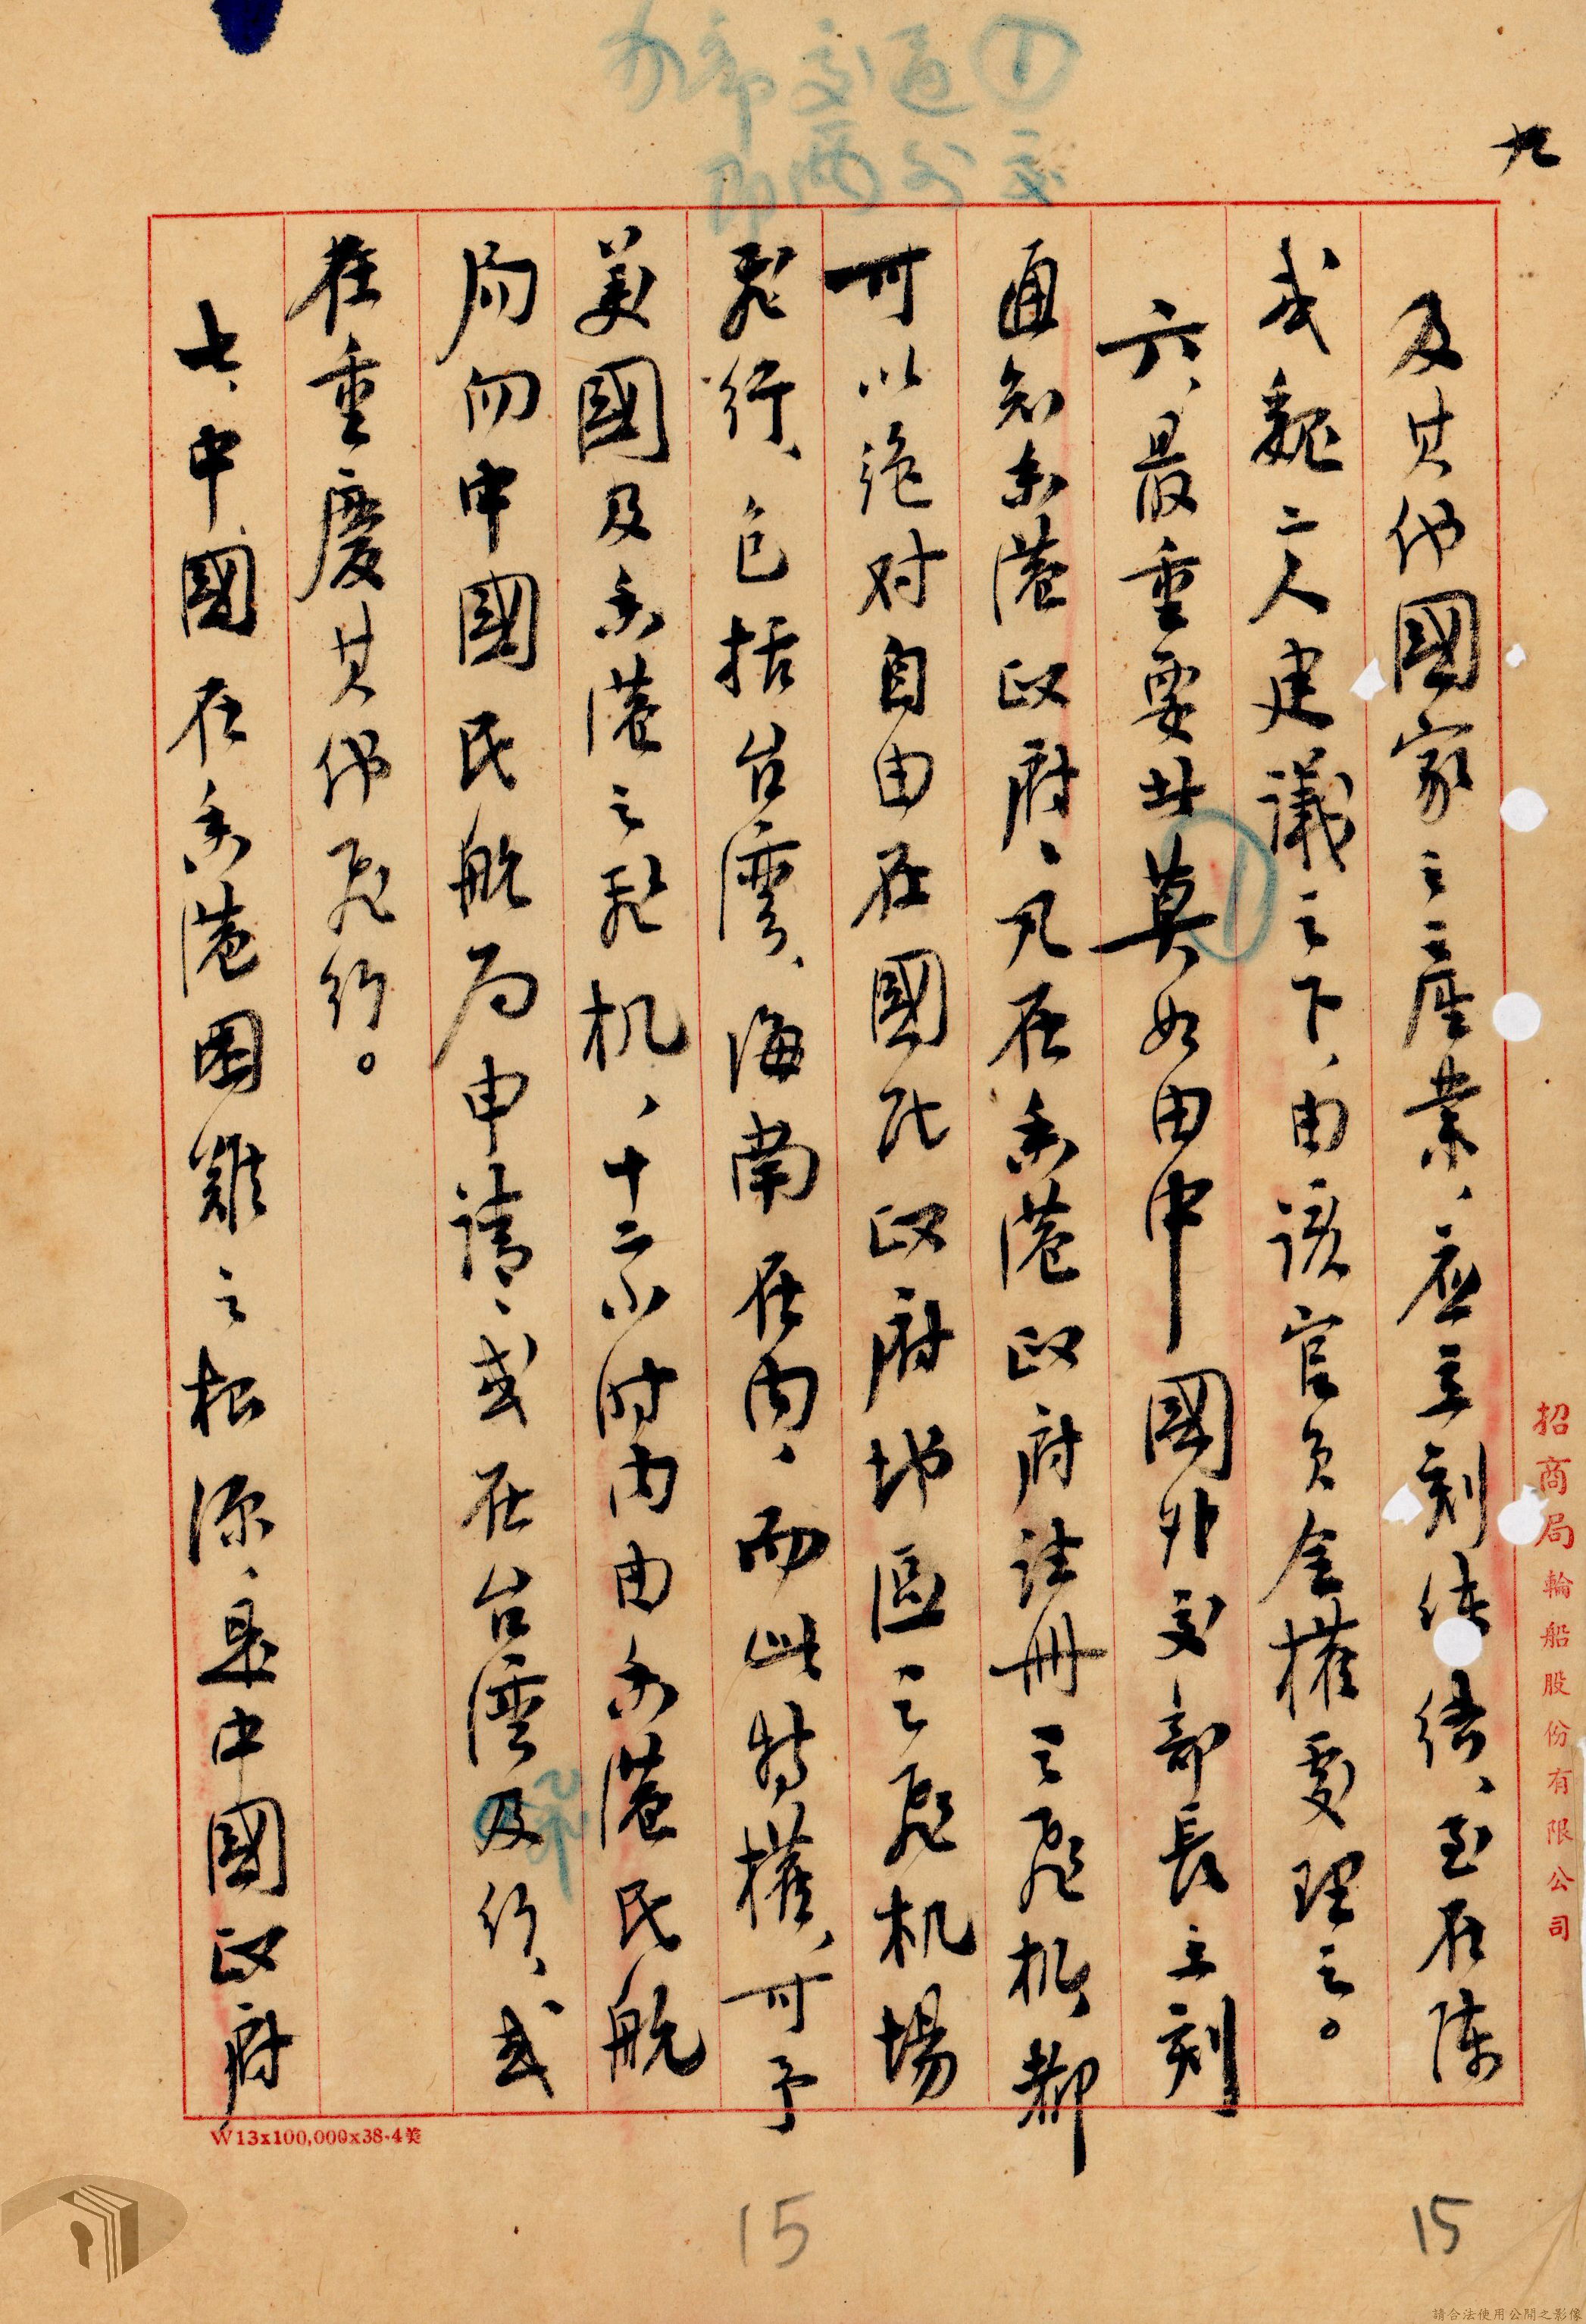 九
①通交部
交外兩部
及其他國家之產業、應立刻結、至在陳
或魏二人建議之下、由該官員全權處理之。
六、最重要者莫如由中國外交部長立刻
通知香港政府、凡在香港政府註冊之飛机、都
可以絕对自由在國民政府地區之飛机場
飛行、包括台灣、海南在內、而此特權、可予
美國及香港之飛机、十二小時內由香港民航
局向中國民航局申請、或在台灣及行、或
在重慶其他飛行。
七、中國在香港困難之根源、是中國政府
招商局輪船股份有限公司
W13x100,000x38·4美
15
15
請合法使用公開之影像